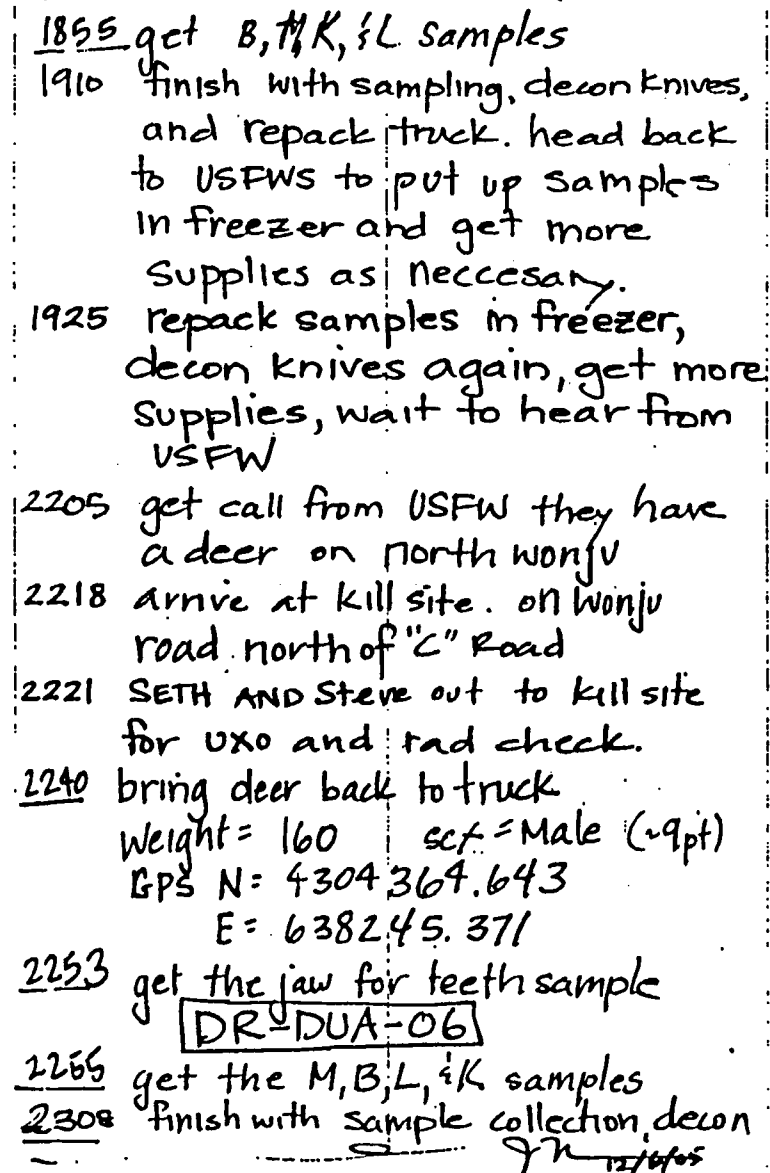 1855 get B, M, K, & L samples
1910 finish with sampling, decon knives,
and repack truck. head back
to USFWS to put up samples
in freezer and get more
supplies as neccesary.
1925 repack samples in freezer,
decon knives again, get more
supplies, wait to hear from
USFW
2205 get call from USFW they have
a deer on north wonju
2218 arrive at kill site. on Wonju
road north of "C" Road
2221 SETH AND Steve out to kill site
for UXO and rad check.
2240 bring deer back to truck
Weight = 160 sex = Male (~9pt)
GPS N: 4304364.643
E = 638245.371
2253 get the jaw for teeth sample
DR-DUA-06
2255 get the M, B, L, & K samples
2308 finish with sample collection, decon
12/6/05